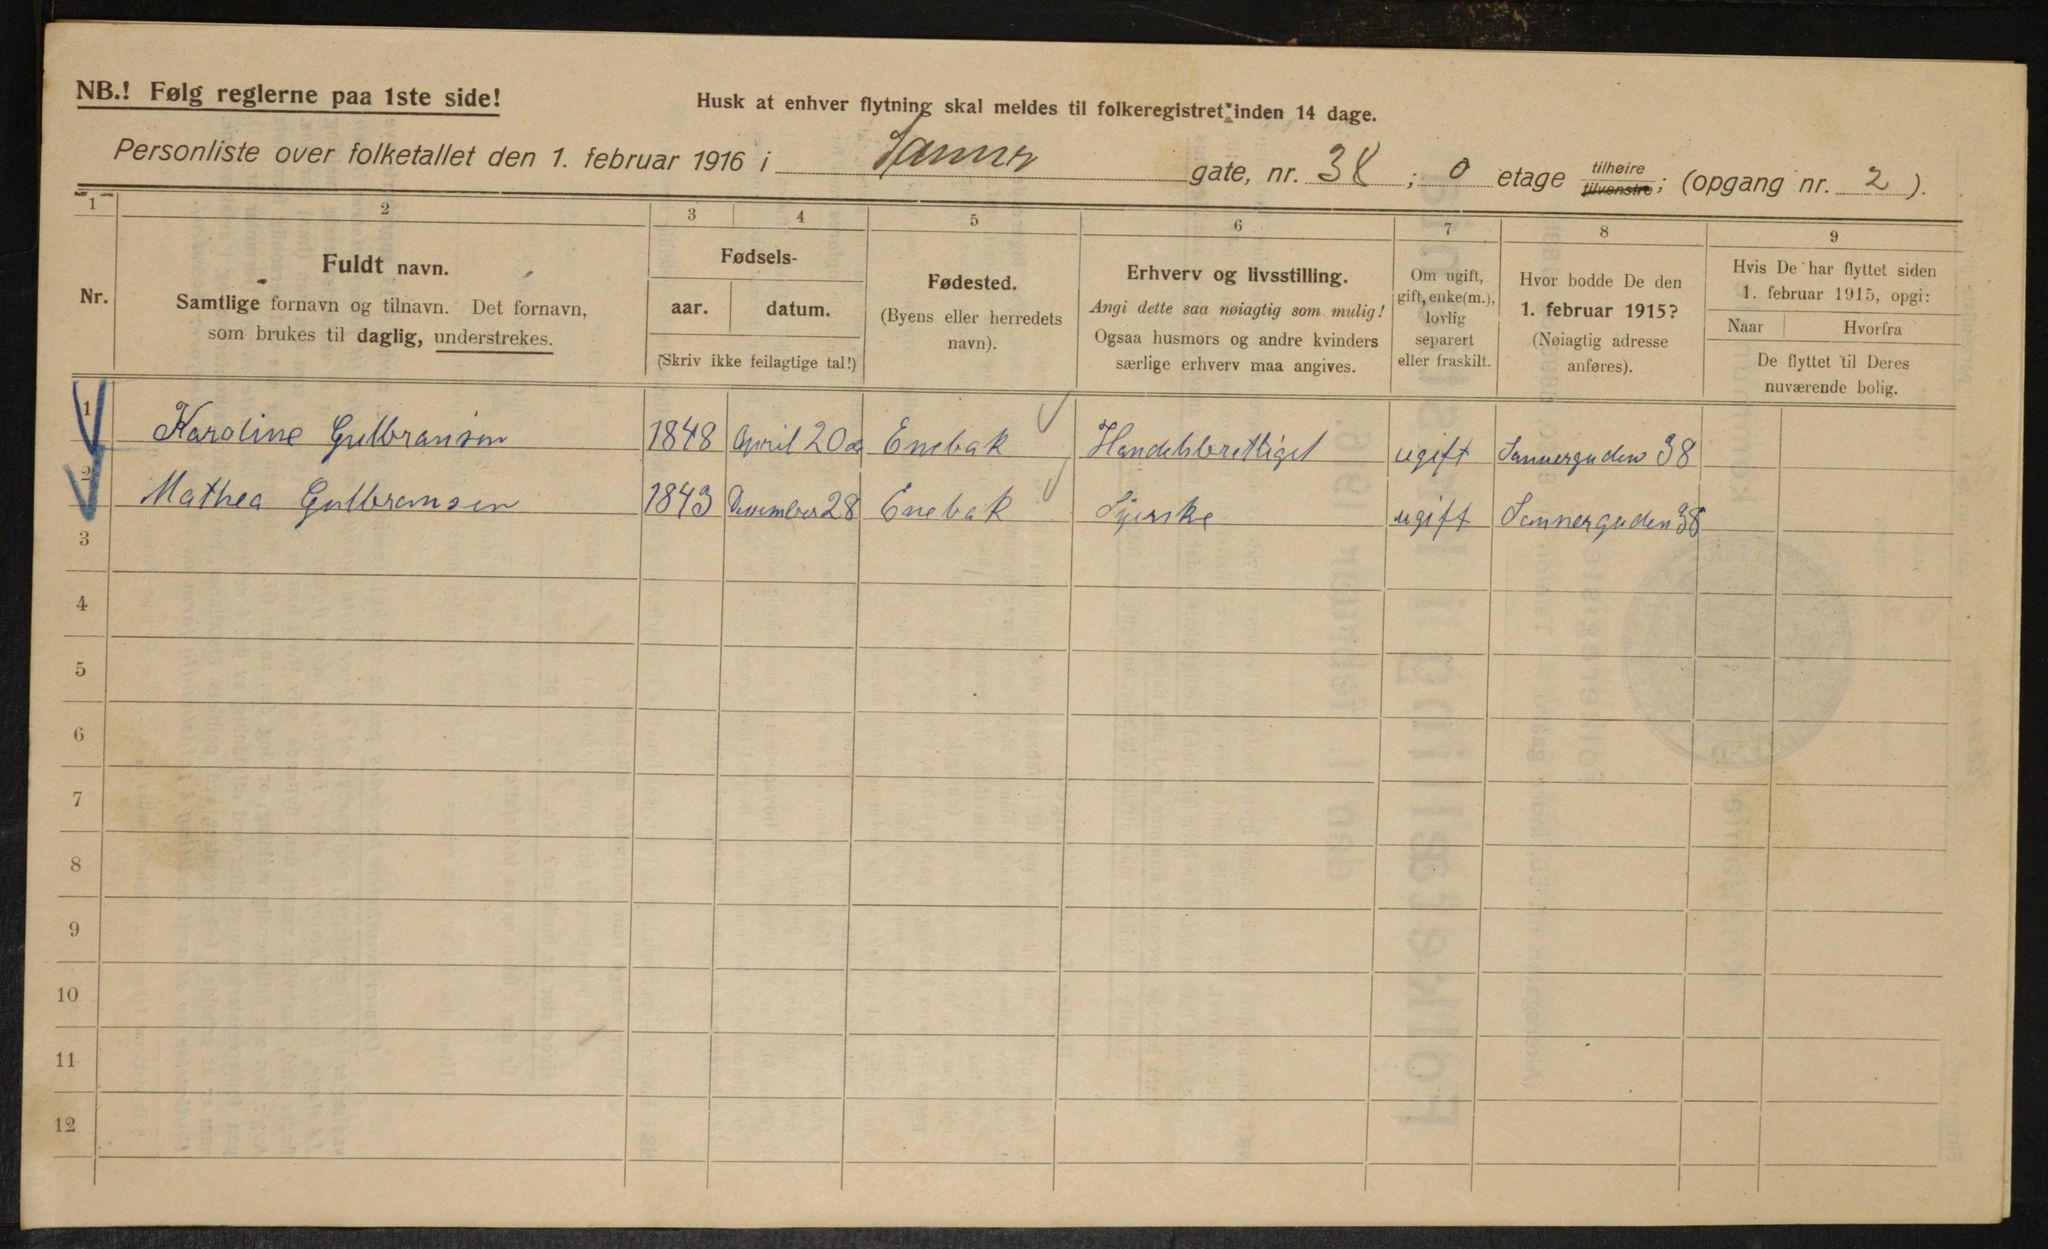 NB.! Følg reglerne paa 1ste side!
Husk at enhver flytning skal meldes til folkeregistret inden 14 dage.
Personliste over folketallet den 1. februar 1916 i Sanner gate, nr. 38 ; 0 etage tilhøire tilvenstre ; (opgang nr. 2 ).
1 2 3 4 5 6 7 8 9
Nr.
Fuldt navn.
Samtlige fornavn og tilnavn. Det fornavn,
som brukes til daglig, understrekes.
Fødsels-
aar. datum.
(Skriv ikke feilagtige tal!)
Fødested.
(Byens eller herredets
navn).
Erhverv og livsstilling.
Angi dette saa nøiagtig som mulig!
Ogsaa husmors og andre kvinders
særlige erhverv maa angives.
Om ugift,
gift, enke(m.),
lovlig
separert
eller fraskilt.
Hvor bodde De den
1. februar 1915?
(Nøiagtig adresse
anføres).
Hvis De har flyttet siden
1. februar 1915, opgi:
Naar Hvorfra
De flyttet til Deres
nuværende bolig.
1 Karoline Gulbransen 1848 April 20de Enebak Handelsberettiget ugift Sannergaden 38
2 Mathea Gulbransen 1843 December 28 Enebak Syerske ugift Sannergaden 38
3
4
5
6
7
8
9
10
11
12